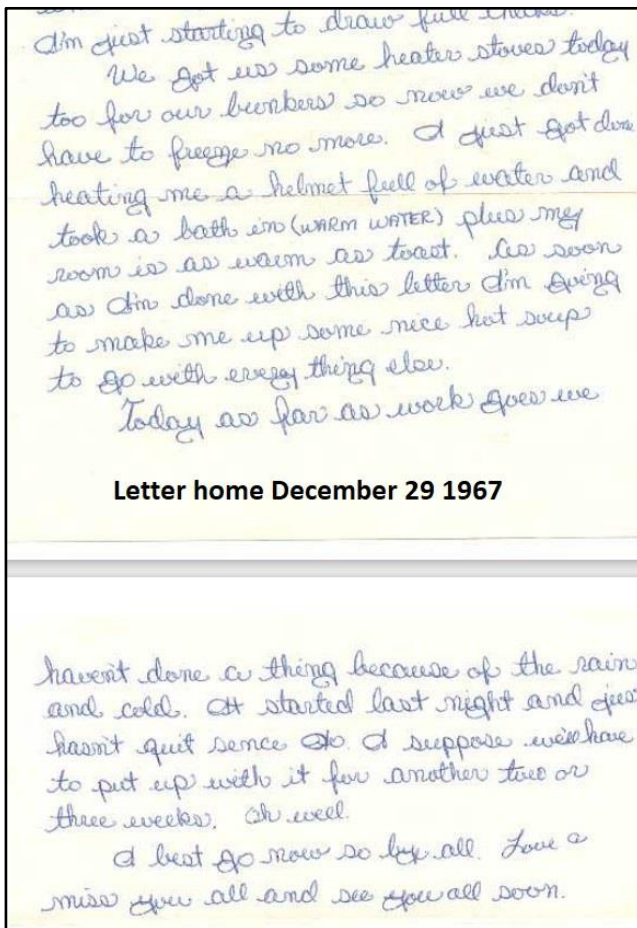 I'm just starting to draw full checks.
We got us some heater stoves today
too for our bunkers so now we don't
have to freeze no more. I just got done
heating me a helmet full of water and
took a bath in (WARM WATER) plus my
room is as warm as toast. As soon
as I'm done with this letter I'm going
to make me up some nice hot soup
to go with every thing else.
Today as far as work goes we
Letter home December 29 1967
haven't done a thing because of the rain
and cold. It started last night and just
hasn't quit sence. I suppose we'll have
to put up with it for another two or
three weeks. Oh well.
I best go now so by all. Love &
miss you all and see you all soon.